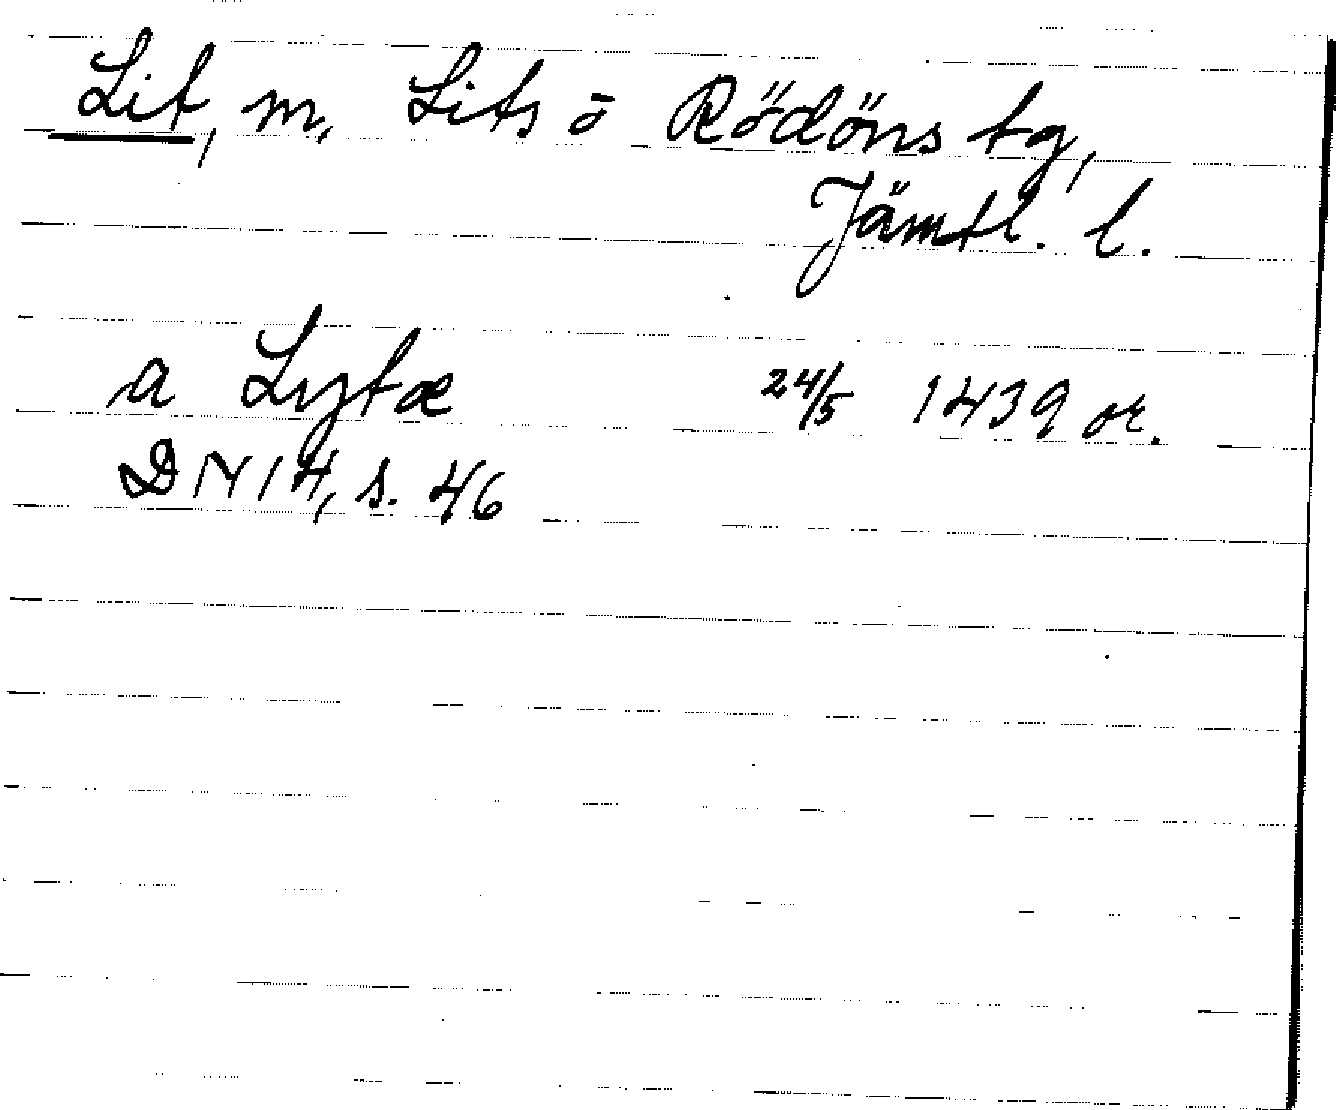 Lit, m. Lits ō Rödöns tg,
Jämtl. l.
a Lytæ 24/5 1439 or.
DN 14, s. 46